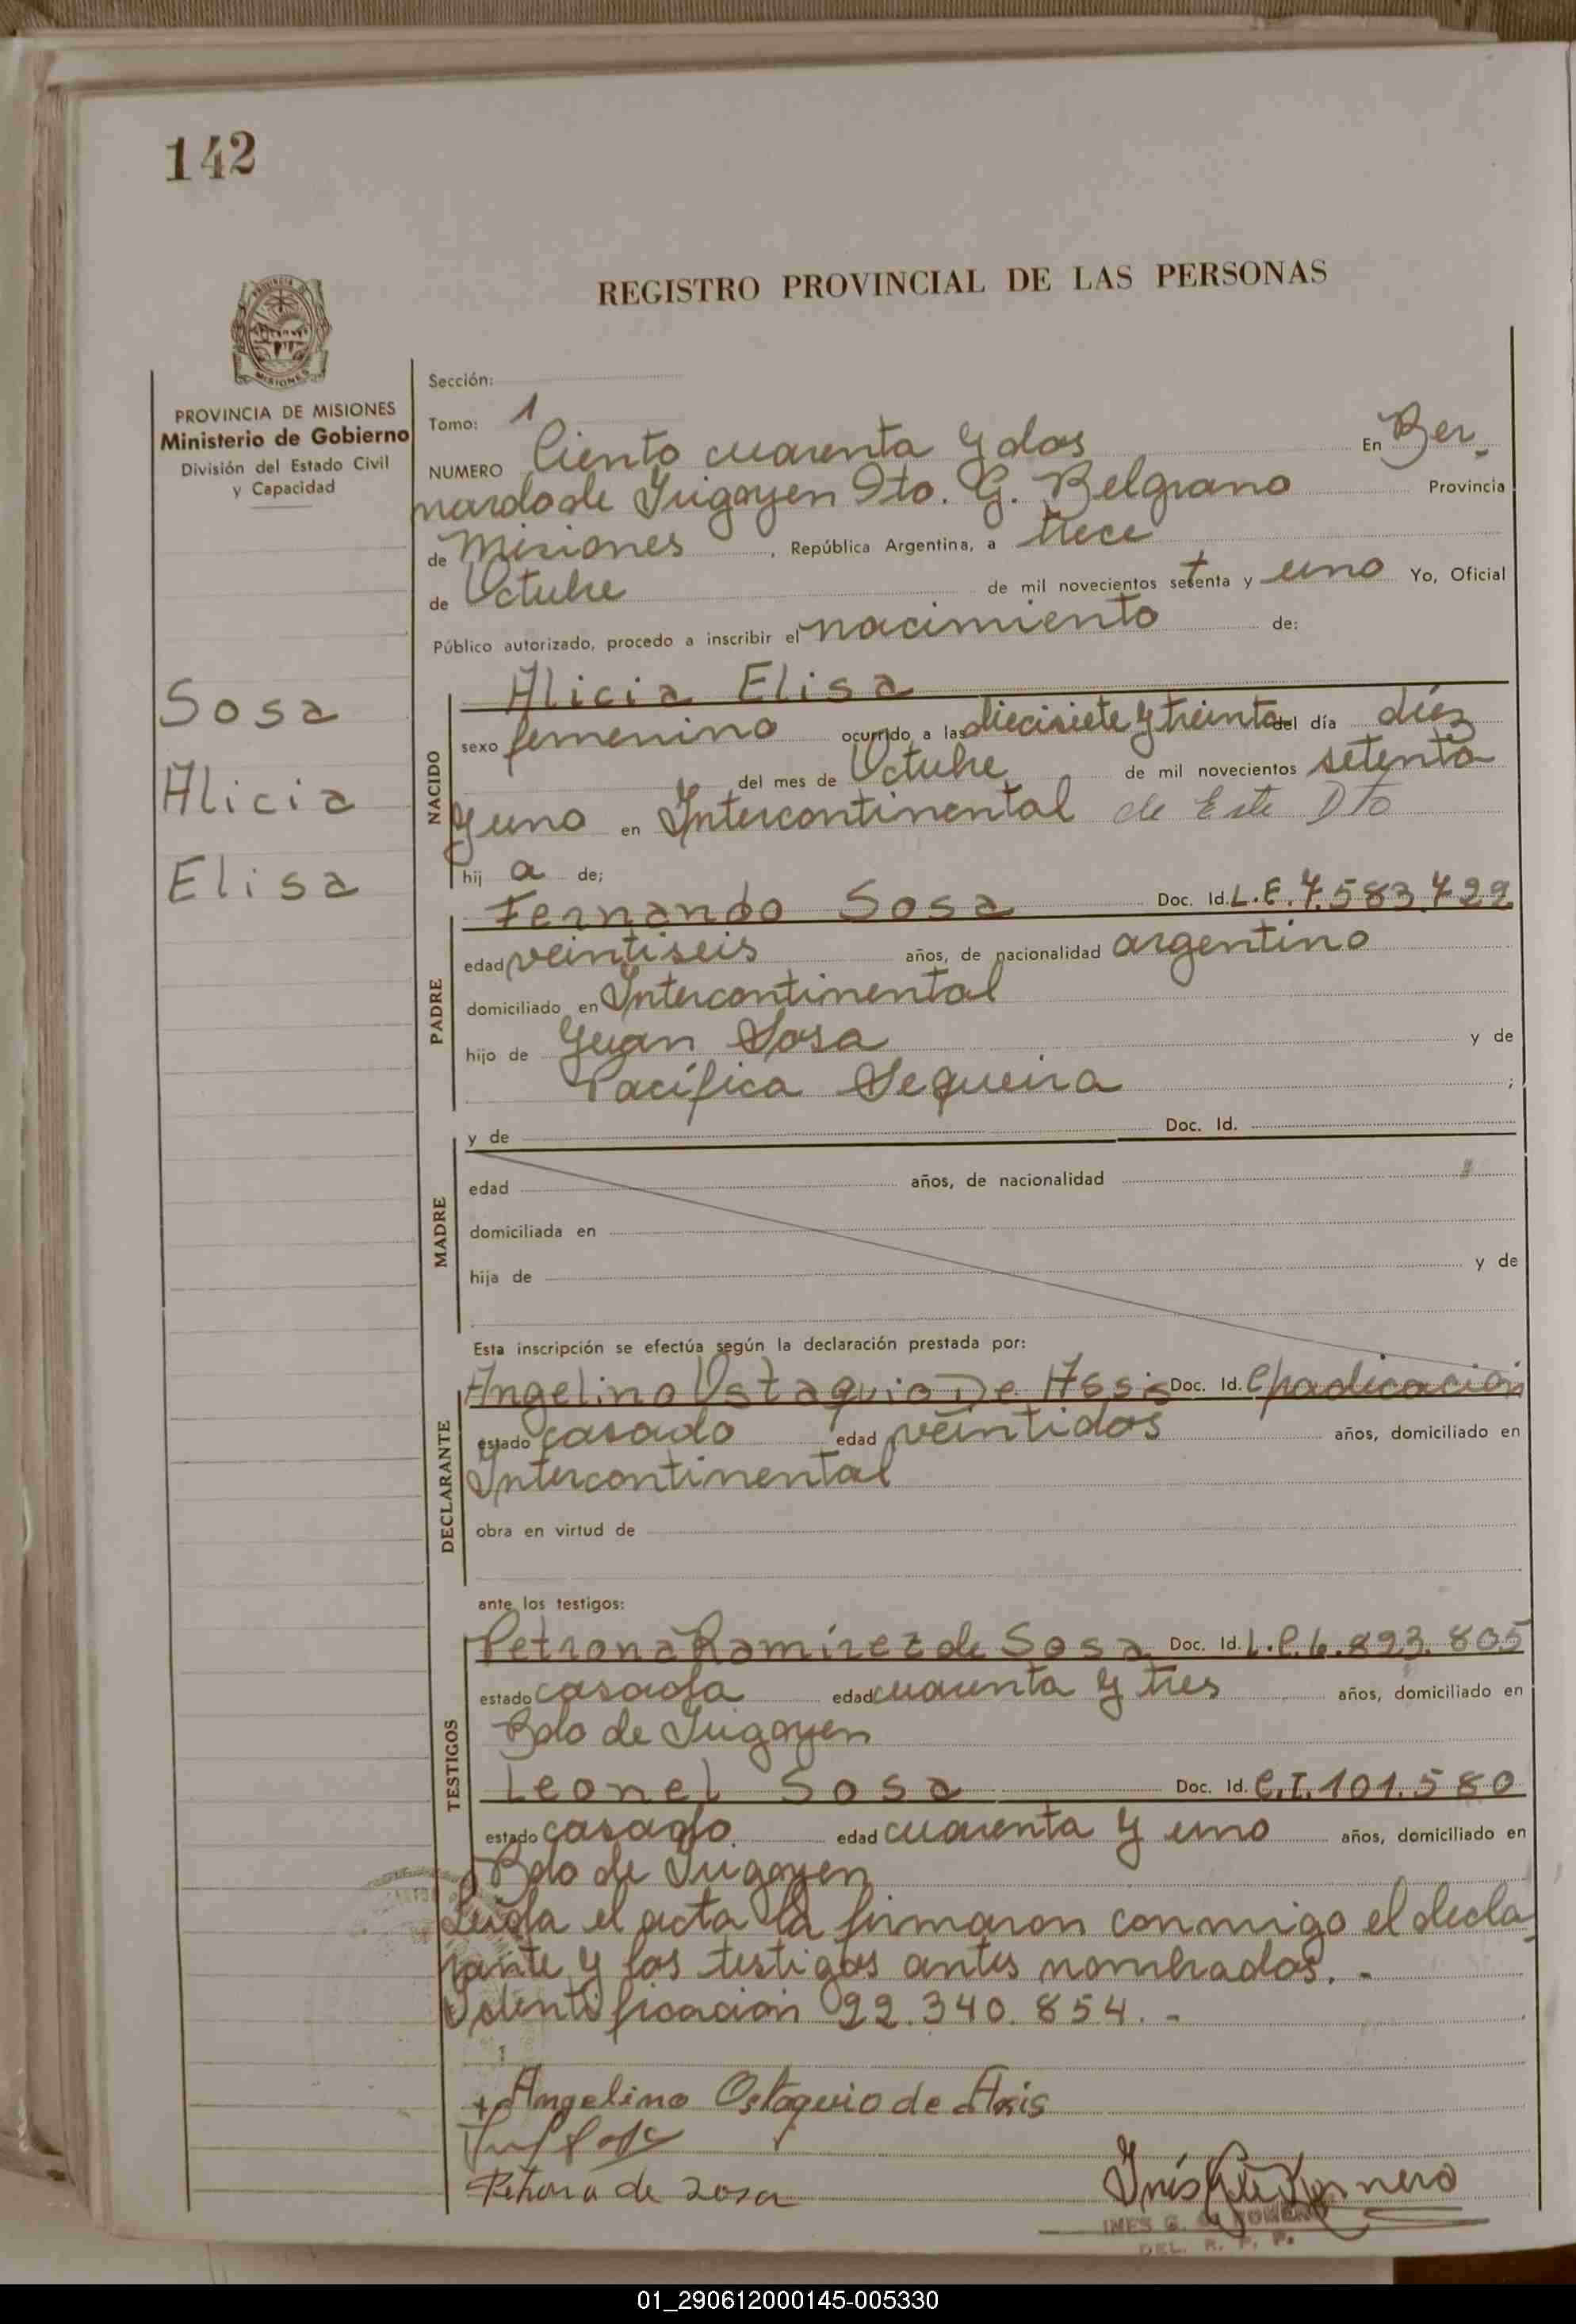 142
REGISTRO PROVINCIAL DE LAS PERSONAS
MISIONES
PROVINCIA DE MISIONES
Ministerio de Gobierno
División del Estado Civil
y Capacidad
Sosa
Alicia
Elisa
Sección:
Tomo: 1
NUMERO Ciento cuarenta y dos En Ber-
nardo de Irigoyen Dto. G. Belgrano Provincia
de Misiones, República Argentina, a trece
de Octubre de mil novecientos setenta y uno Yo, Oficial
Público autorizado, procedo a inscribir el nacimiento de:
NACIDO
Alicia Elisa
sexo femenino ocurrido a las diecisiete y treinta del día diéz
del mes de Octubre de mil novecientos setenta
y uno en Intercontinental de Este Dto
hij a de;
PADRE
Fernando Sosa Doc. Id. L.E. 7.583.729
edad veintiseis años, de nacionalidad argentino
domiciliado en Intercontinental
hijo de Juan Sosa y de
Pacífica Sequeira ;
MADRE
y de Doc. Id.
edad años, de nacionalidad
domiciliada en
hija de y de
Esta inscripción se efectúa según la declaración prestada por:
DECLARANTE
Angelino Ostaquio De Assis Doc. Id.
estado casado edad veintidos años, domiciliado en
Intercontinental
obra en virtud de
ante los testigos:
TESTIGOS
Petrona Ramirez de Sosa Doc. Id. L.C. 6.893.805
estado casada edad cuarenta y tres años, domiciliado en
Bdo de Irigoyen
Leonel Sosa Doc. Id. C.I. 101.580
estado casado edad cuarenta y uno años, domiciliado en
Bdo de Irigoyen
Leída el acta la firmaron conmigo el decla-
rante y los testigos antes nombrados.-
Identificación 22.340.854.-
Angelino Ostaquio de Asis
Petrona de Sosa
INES G. ROMERO
DEL. R. P. P.
01_290612000145-005330